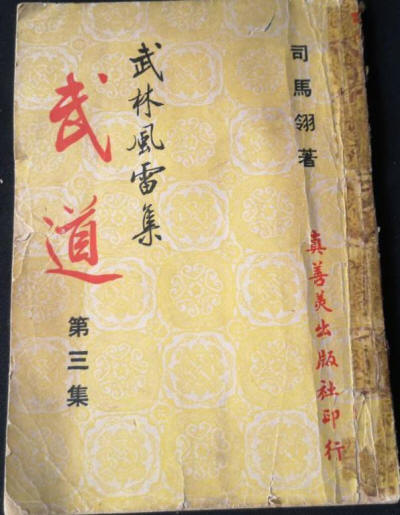 司馬翎著
真善美出版社印行
武林風雷集
武道
第三集